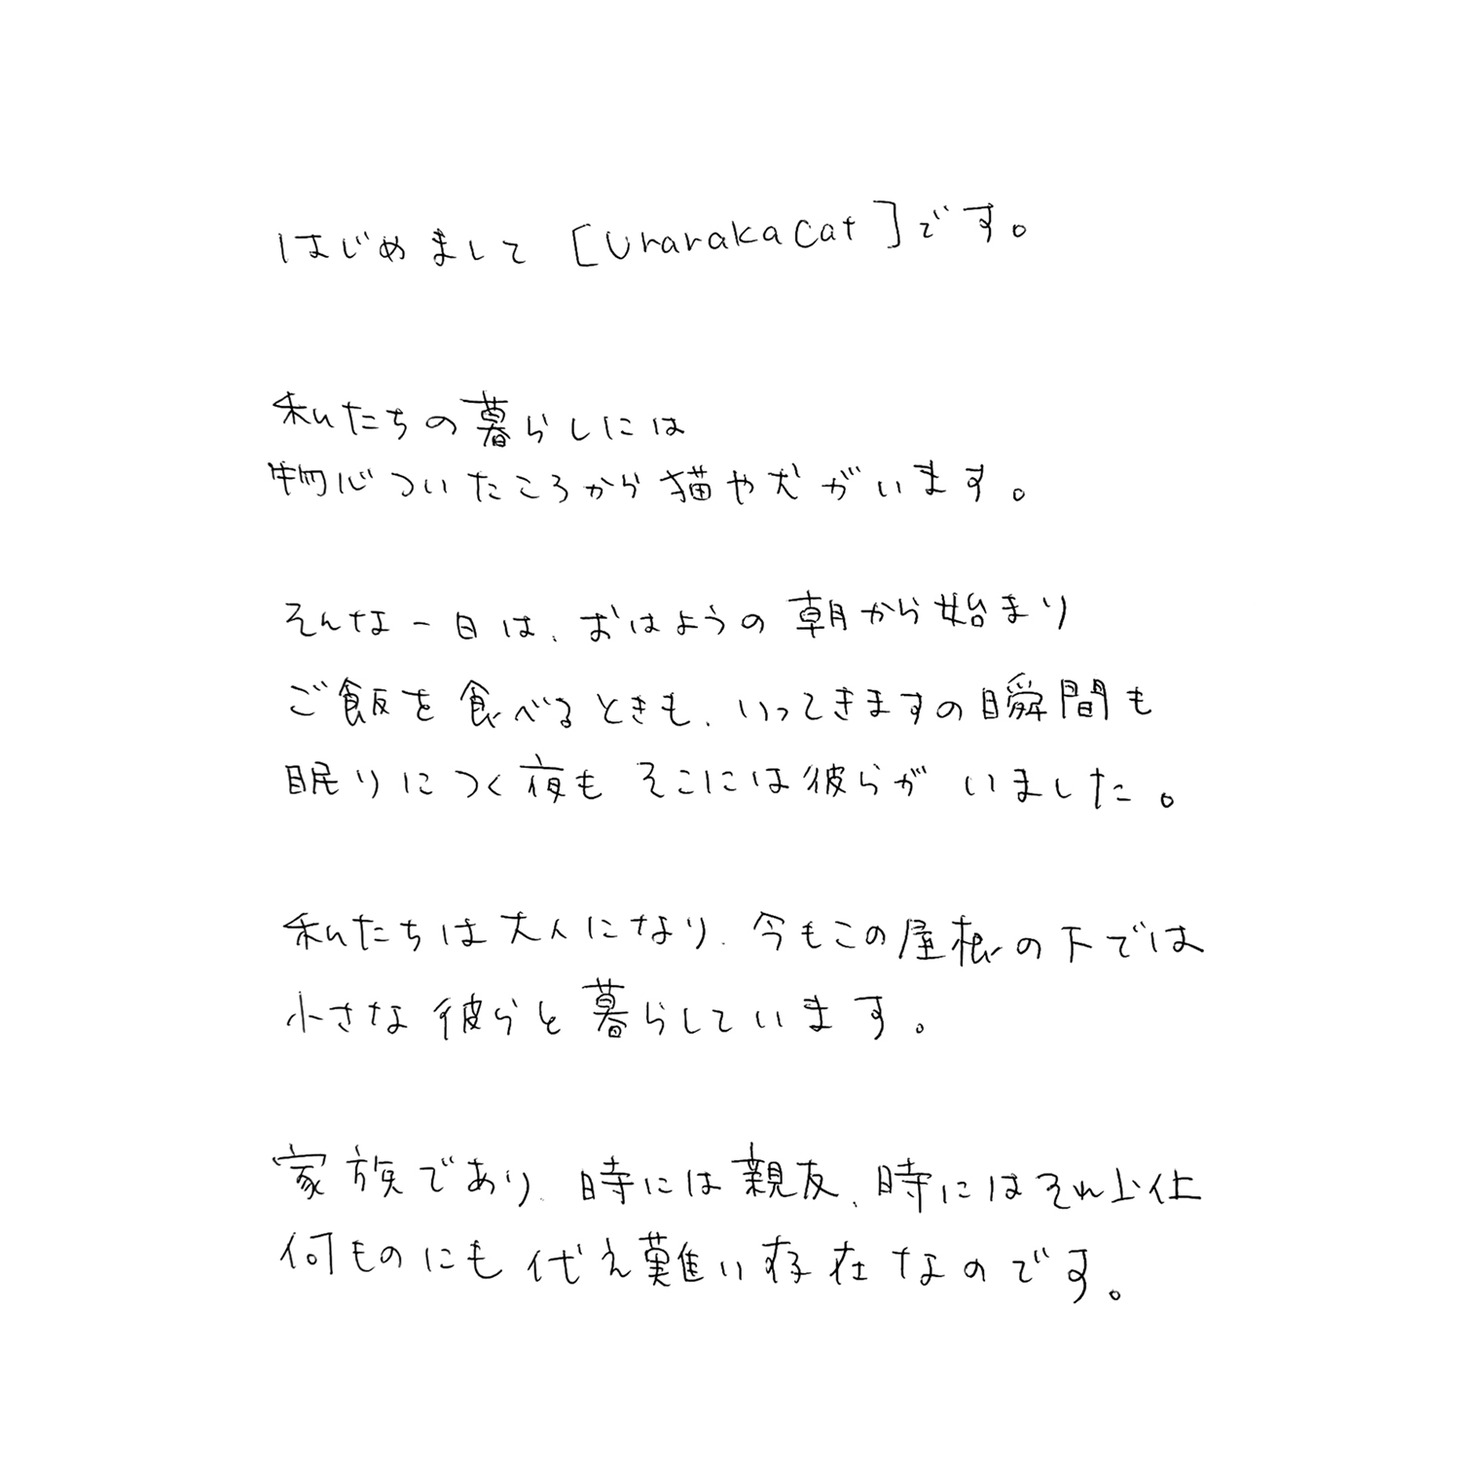 はじめまして [UrarakaCat]です。
私たちの暮らしには
物心ついたころから猫や犬がいます。
そんな一日は、おはようの朝から始まり
ご飯を食べるときも、いってきますの瞬間も
眠りにつく夜も そこには彼らが いました。
私たちは大人になり、今もこの屋根の下では
小さな彼らと暮らしています。
家族であり、時には親友、時にはそれ以上
何ものにも代え難い存在なのです。